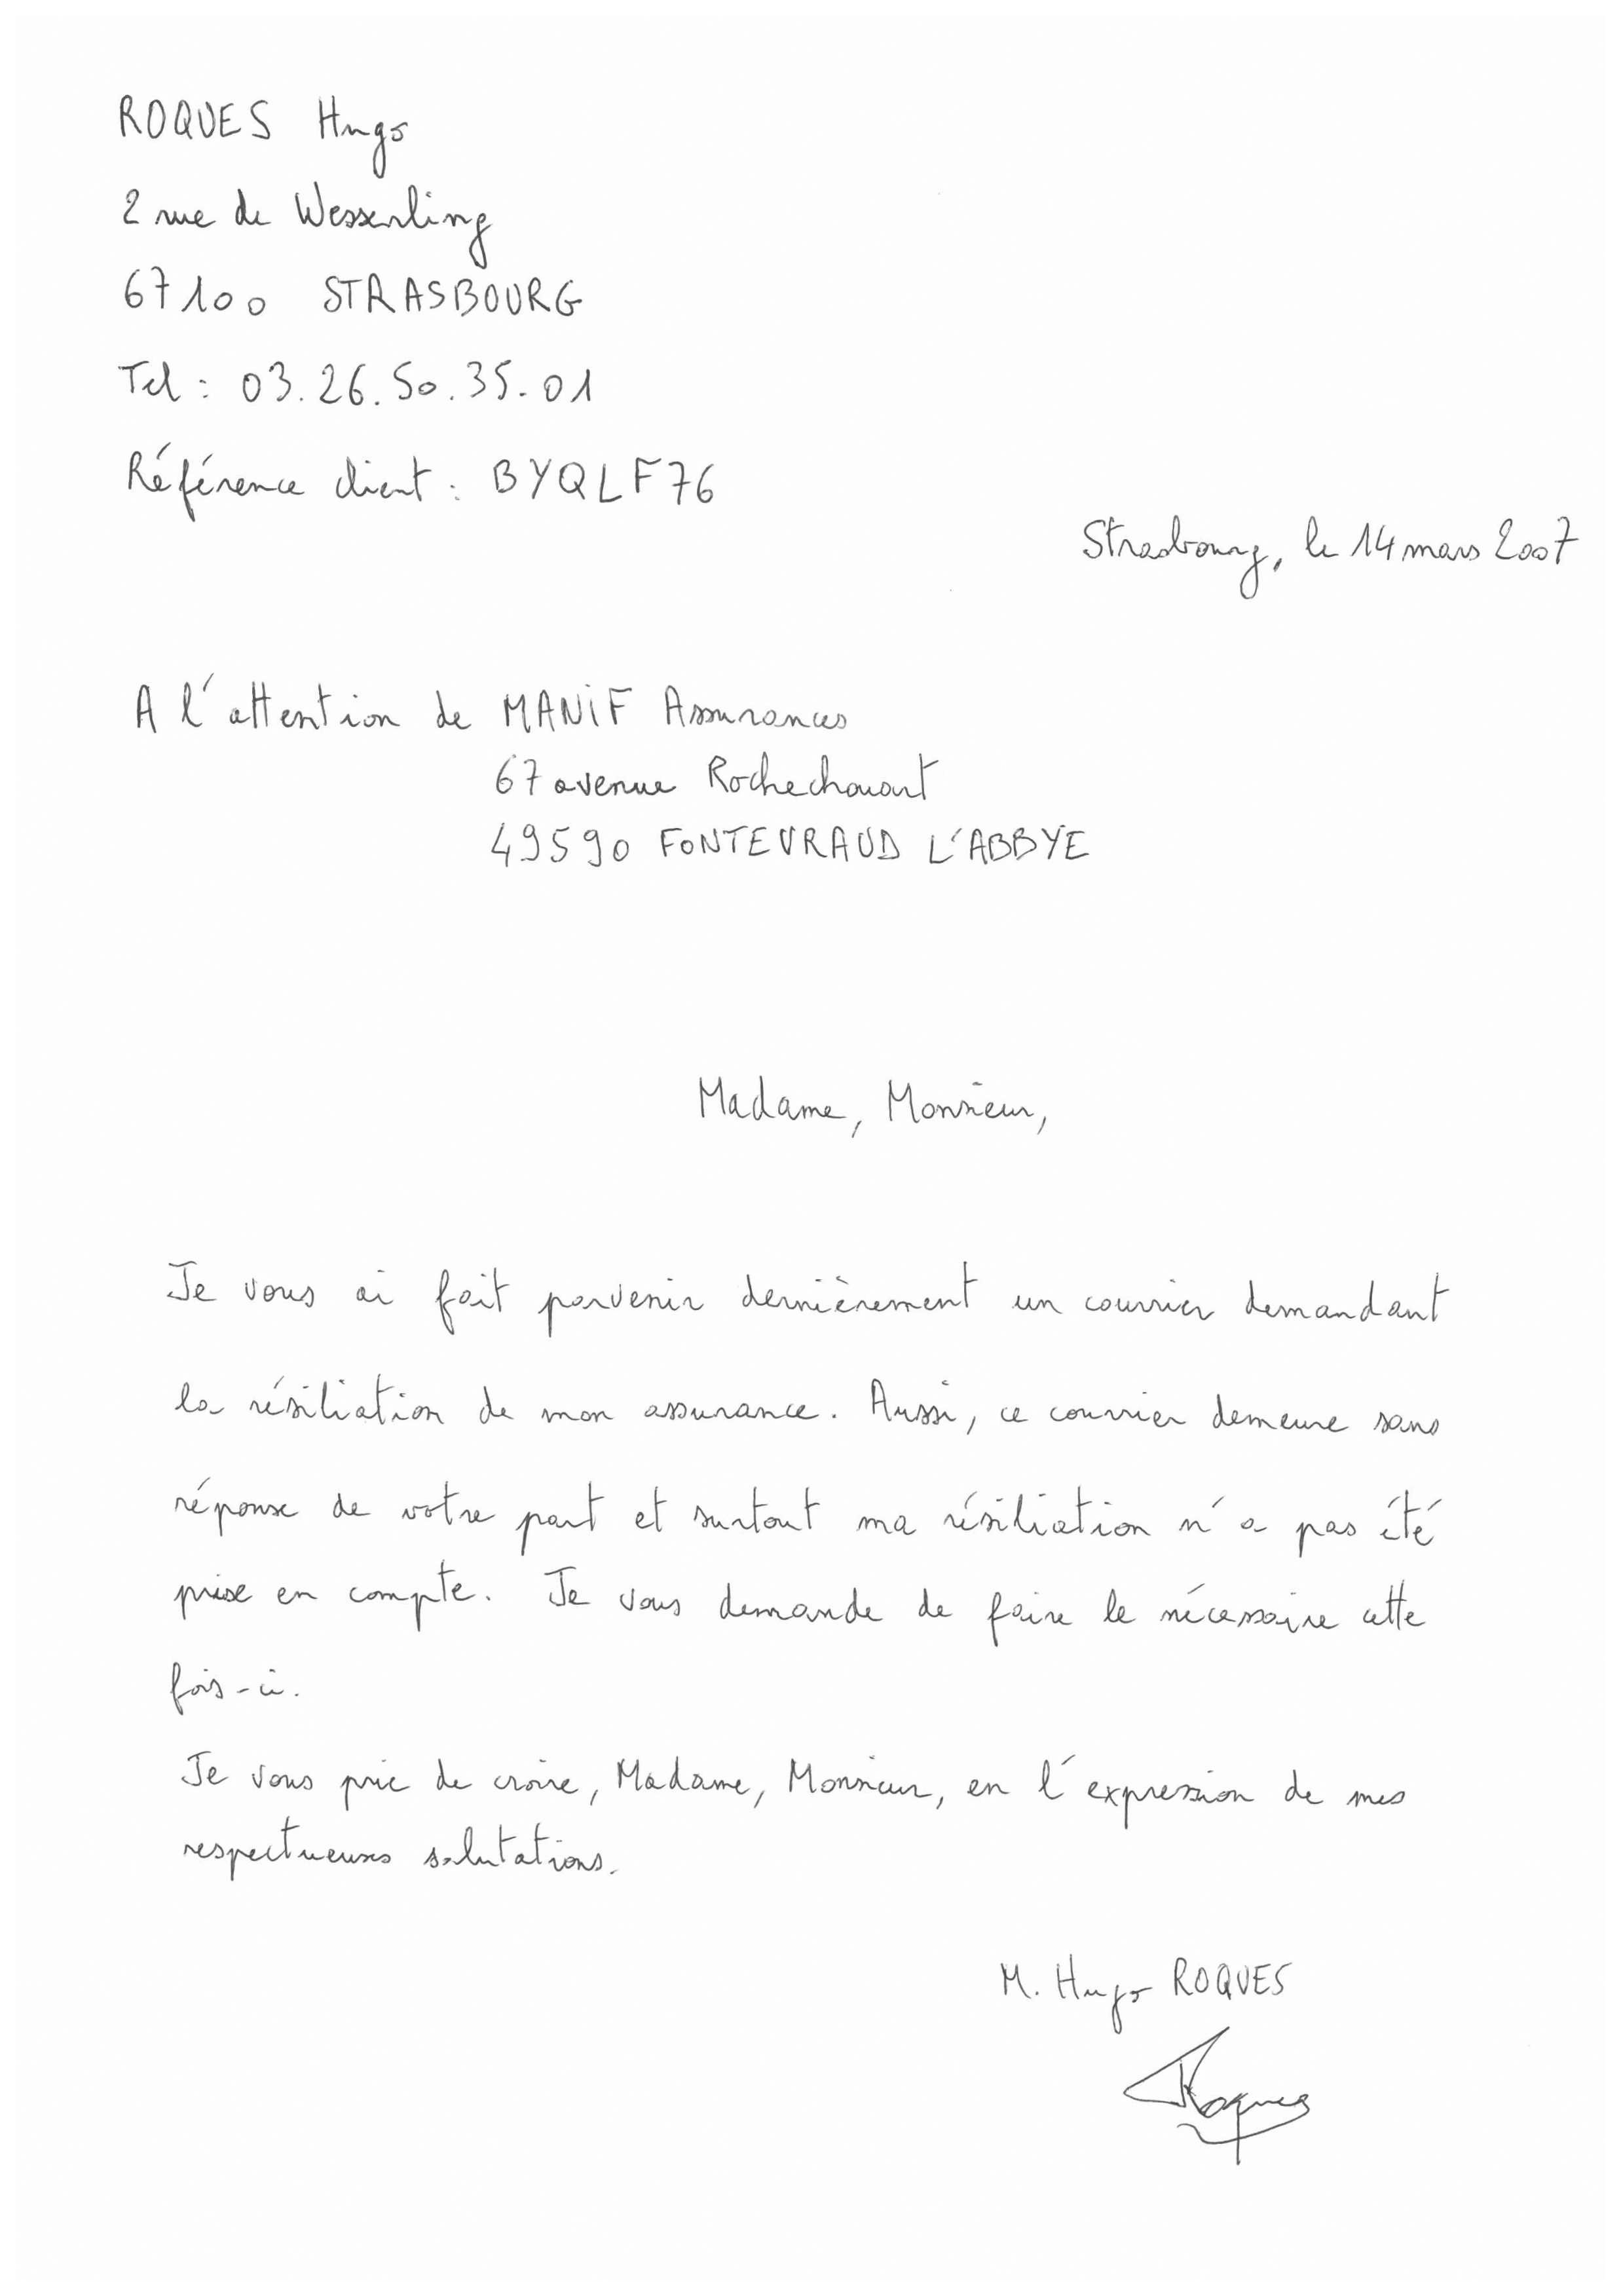 ROQUES Hugo
2 rue de Wesserling
67100 STRASBOURG
Tel : 03.26.50.35.01
Référence client : BYQLF76
Strasbourg, le 14 mars 2007
A l'attention de MANiF Assurances
67 avenue Rochechouart
49590 FONTEVRAUD L'ABBYE
Madame, Monsieur,
Je vous ai fait parvenir dernièrement un courrier demandant
la résiliation de mon assurance. Aussi, ce courrier demeure sans
réponse de votre part et surtout ma résiliation n'a pas été
prise en compte. Je vous demande de faire le nécessaire cette
fois-ci.
Je vous prie de croire, Madame, Monsieur, en l'expression de mes
respectueuses salutations.
M. Hugo ROQUES
Roques